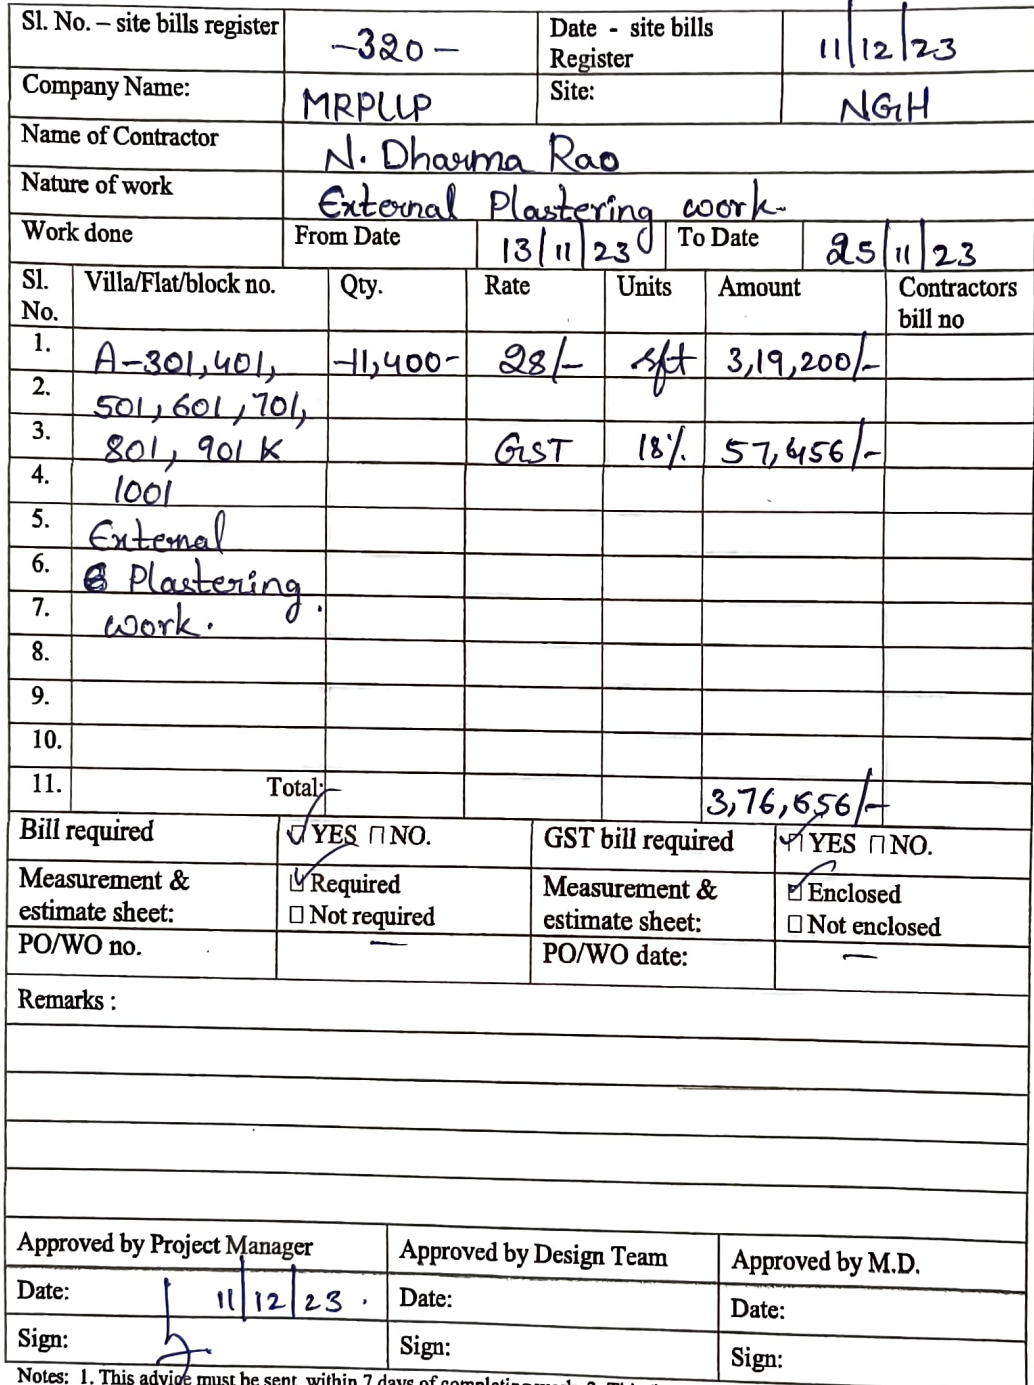 Sl. No. – site bills register -320- Date - site bills Register 11/12/23
Company Name: MRPLLP Site: NGH
Name of Contractor N. Dharma Rao
Nature of work External Plastering work.
Work done From Date 13/11/23 To Date 25/11/23
Sl. No. Villa/Flat/block no. Qty. Rate Units Amount Contractors bill no
1. A-301,401, -11,400- 28/- sft 3,19,200/-
2. 501,601,701,
3. 801, 901 & GST 18% 57,456/-
4. 1001
5. External
6. Plastering
7. work.
8.
9.
10.
11. Total:- 3,76,656/-
Bill required YES NO. GST bill required YES NO.
Measurement & estimate sheet: Required Not required Measurement & estimate sheet: Enclosed Not enclosed
PO/WO no. — PO/WO date: —
Remarks :
Approved by Project Manager Approved by Design Team Approved by M.D.
Date: 11/12/23. Date: Date:
Sign: Sign: Sign:
Notes: 1. This advice must be sent within 7 days of completing